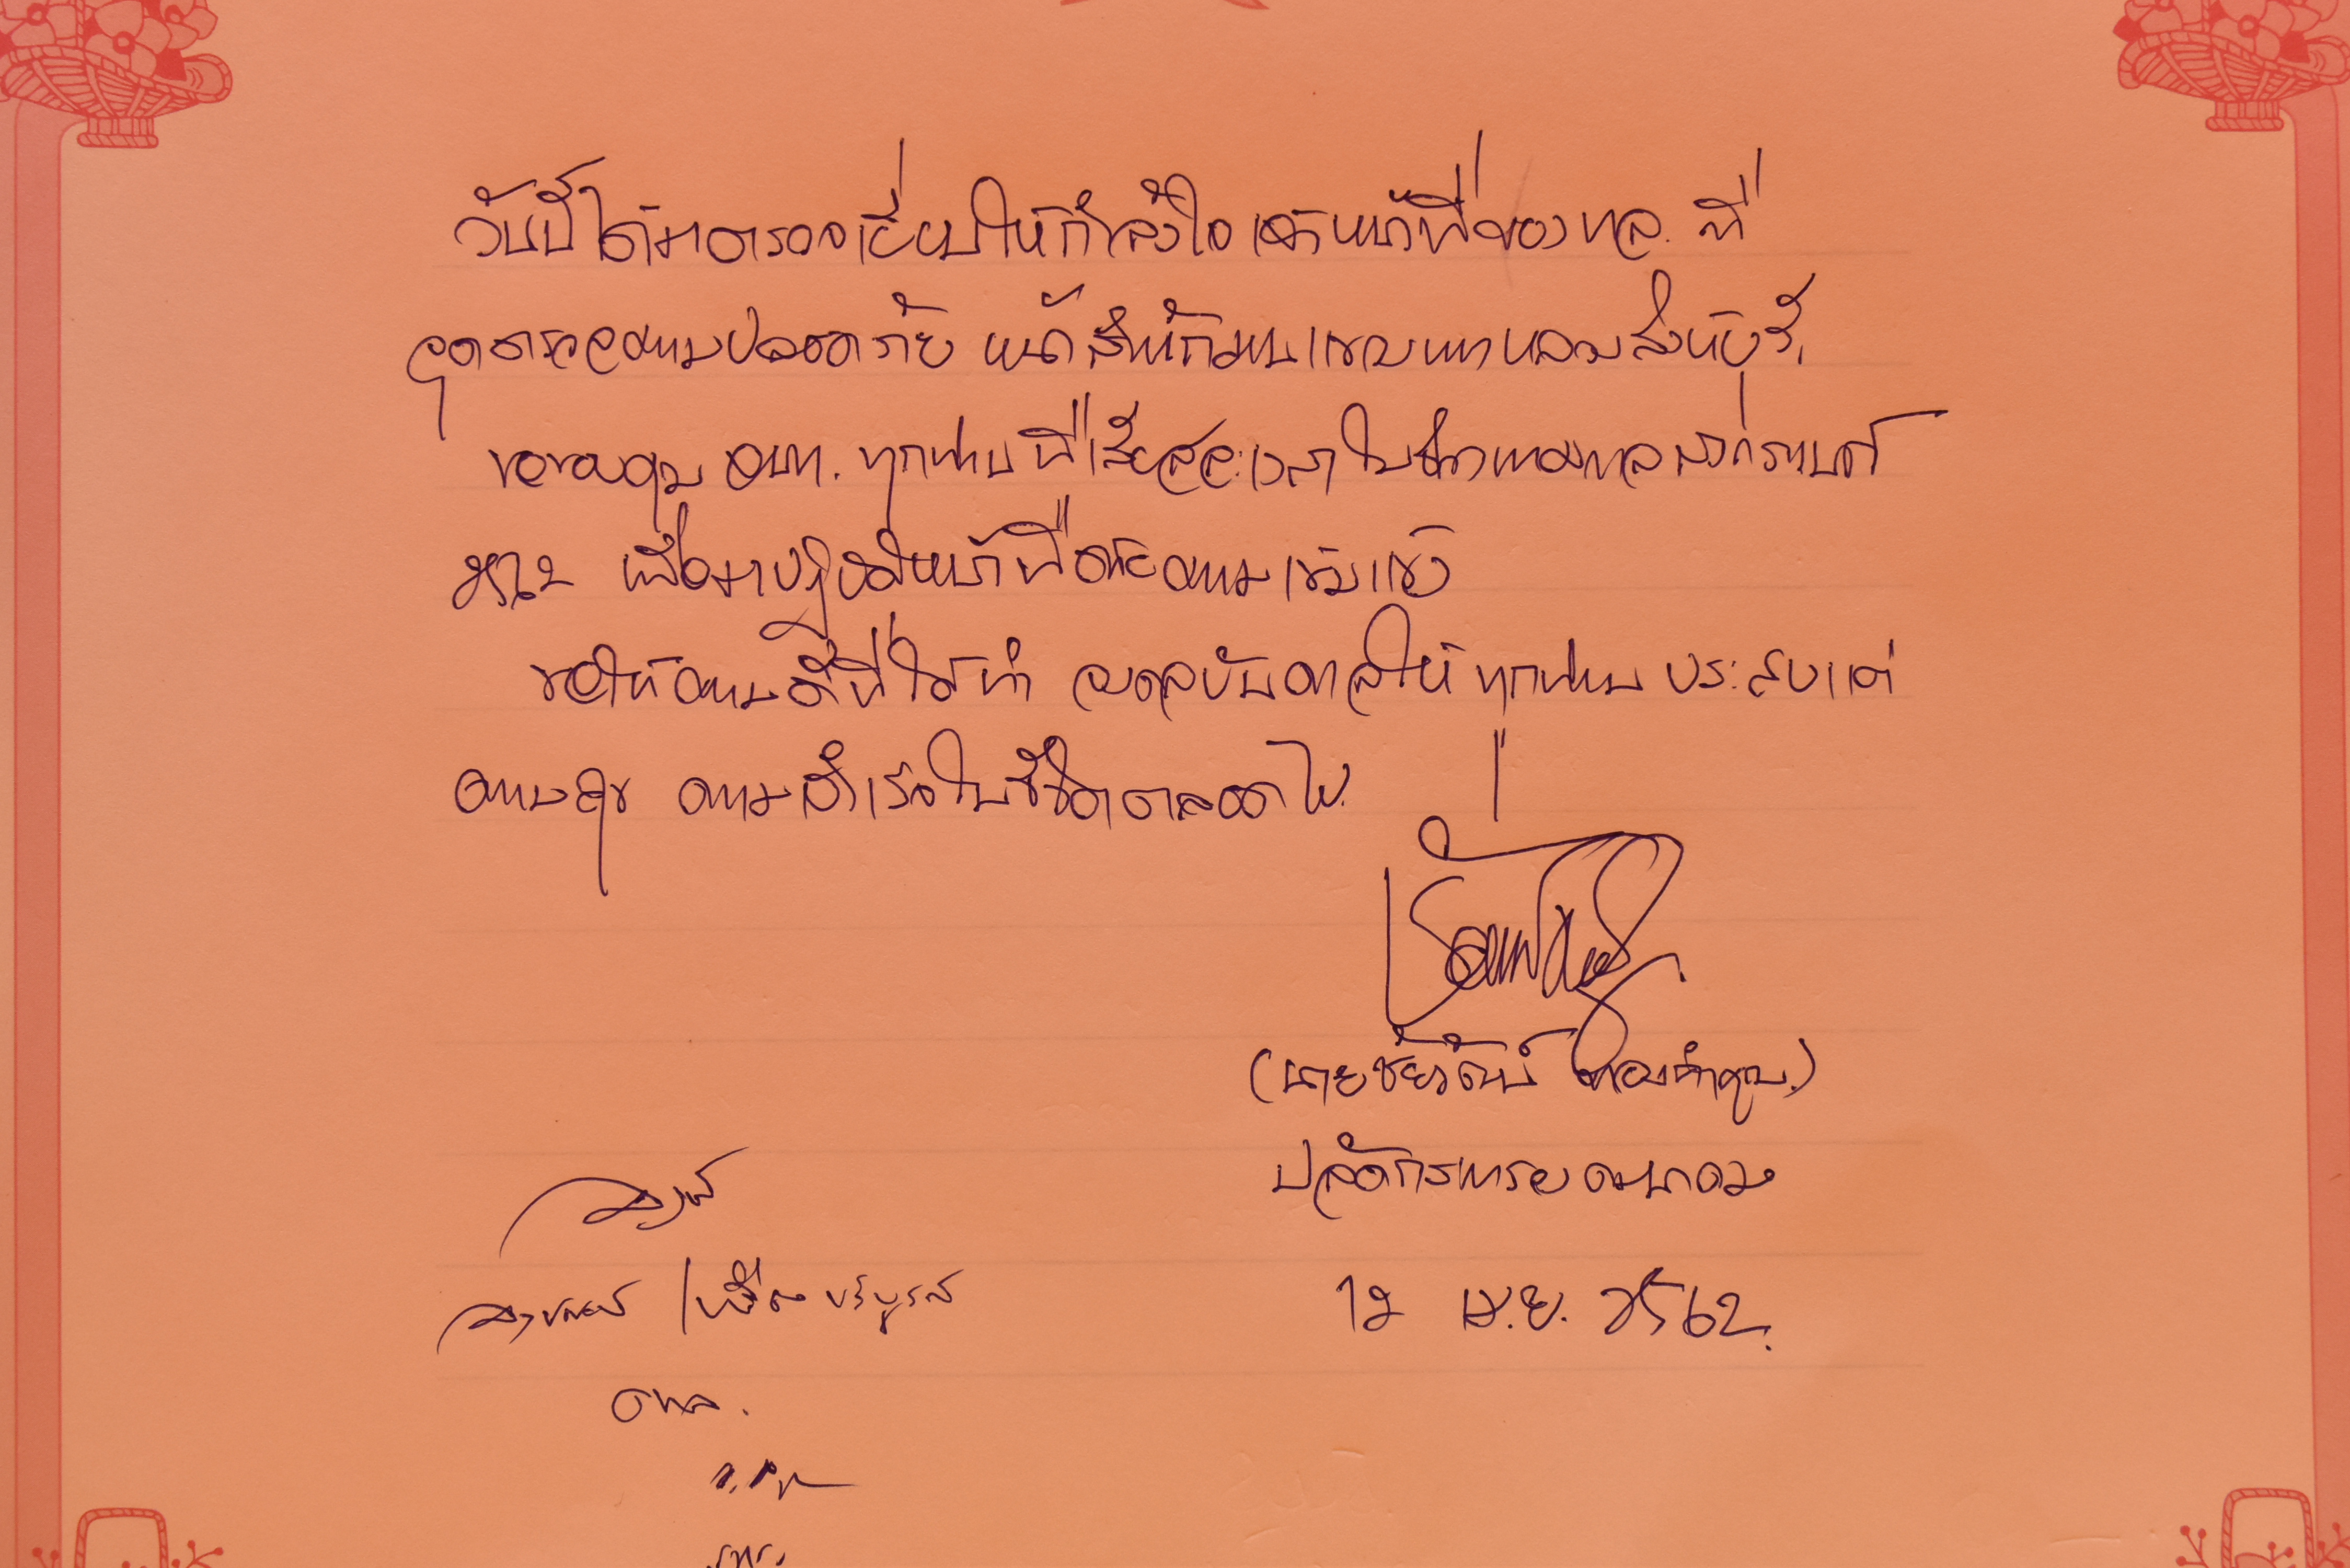 วันนี้ได้มาตรวจเยี่ยมให้กำลังใจเจ้าหน้าที่ของ ทล. ที่
จุดตรวจความปลอดภัย หน้าสำนักงานแขวงทางหลวงสิงห์บุรี
ขอขอบคุณ จนท. ทุกท่านที่เสียสละเวลาในช่วงเทศกาลสงกรานต์
เพื่อมาปฏิบัติหน้าที่ด้วยความเข้มแข็ง
ขอให้ความดีที่ได้ทำ จงดลบันดาลให้ทุกท่าน ประสบแต่
ความสุข ความสำเร็จในชีวิตตลอดไป.
(นายชัยวัฒน์ ทองคำคูณ.)
ปลัดกระทรวงคมนาคม
12 เม.ย. 2562.
อทล.